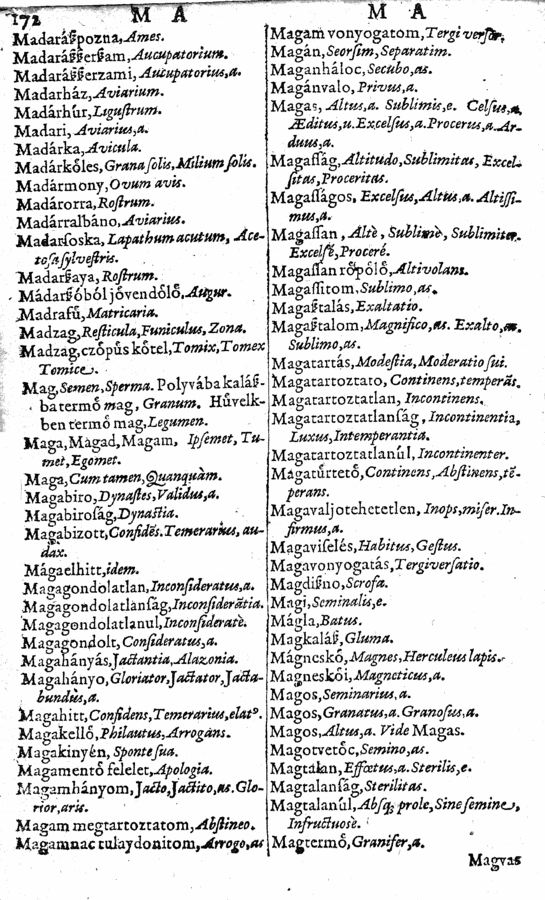 172 M A
Madárſzpozna, Ames.
Madáráſzſzerſzam, Aucupatorium.
Madáráſzſzerzami, Aucupatorius,a.
Madarház, Aviarium.
Madárhúr, Liguſtrum.
Madari, Aviarius,a.
Madárka, Avicula.
Madárkőles, Grana ſolis, Milium ſolis.
Madármony, Ovum avis.
Madárorra, Roſtrum.
Madárralbáno, Aviarius.
Madarſoska, Lapathum acutum, Ace-
toſa ſylveſtris.
Madarſzaya, Roſtrum.
Mádarſzóból jóvendőlő, Augur.
Madrafű, Matricaria.
Madzag, Reſticula, Funiculus, Zona.
Madzag, czőpűs kőtel, Tomix, Tomex
Tomice.
Mag, Semen, Sperma. Polyvába kaláſz-
ba termő mag, Granum. Hűvelk-
ben termő mag, Legumen.
Maga, Màgad, Magam, Ipſemet, Tu-
met, Egomet.
Maga, Cum tamen, Quanquàm.
Magabiro, Dynaſtes, Validus,a.
Magabiroſág, Dynaſtia.
Magabizott, Confidẽs. Temerarius, au-
dax.
Mágaelhitt, idem.
Magagondolatlan, Inconſideratus,a.
Magagondolatlanſág, Inconſiderãtia.
Magagondolatlanul, Inconſideratè.
Magagondolt, Conſideratus,a.
Magahányás, Jactantia, Alazonia.
Magahányo, Gloriator, Jactator, Jacta-
bundus,a.
Magahitt, Confidens, Temerarius, elatꝰ.
Magakellő, Philautus, Arrogans.
Magakinyén, Sponte ſua.
Magamentő felelet, Apologia.
Magamhányom, Jacto, Jactito,as. Glo-
rior,aris.
Magam megtartoztatom, Abſtineo.
Magamnac tulaydonitom, Arrogo,as
M A
Magam vonyogatom, Tergi verſor.
Magán, Seorſim, Separatim.
Maganháloc, Secubo,as.
Magánvalo, Privus,a.
Magas, Altus,a. Sublimis,e. Celſus,a,
Æditus,u. Excelſus,a. Procerus,a. Ar-
duus,a.
Magaſſág, Altitudo, Sublimitas, Excel-
ſitas, Proceritas.
Magaſſágos, Excelſus, Altus,a. Altiſſi-
mus,a.
Magaſſan, Altè, Sublimè, Sublimiter.
Excelſè, Proceré.
Magaſſan rőpőlő, Altivolans.
Magaſſitom, Sublimo,as.
Magaſztalás, Exaltatio.
Magaſztalom, Magnifico,as. Exalto,as.
Sublimo,as.
Magatartás, Modeſtia, Moderatio ſui.
Magatartoztato, Continens, temperãs.
Magatartoztatlan, Incontinens.
Magatartoztatlanſág, Incontinentia,
Luxus, Intemperantia.
Magatartoztatlanúl, Incontinenter.
Magatűrtető, Continens, Abſtinens, tẽ-
perans.
Magavaljotehetetlen, Inops, miſer. In-
firmus,a.
Magaviſelés, Habitus, Geſtus.
Magavonyogatás, Tergiverſatio.
Magdiſzno, Scrofa.
Magi, Seminalis,e.
Mágla, Batus.
Magkaláſz, Gluma.
Mágneskő, Magnes, Herculeus lapis.
Magneskői, Magneticus,a.
Magos, Seminarius,a.
Magos, Granatus,a. Granoſus,a.
Magos, Altus,a. Vide Magas.
Magotvetőc, Semino,as.
Magtalan, Effœtus,a. Sterilis,e.
Magtalanſág, Sterilitas.
Magtalanúl, Abſq; prole, Sine ſemine,
Infructuosè.
Magtermő, Granifer,a.
Magvas